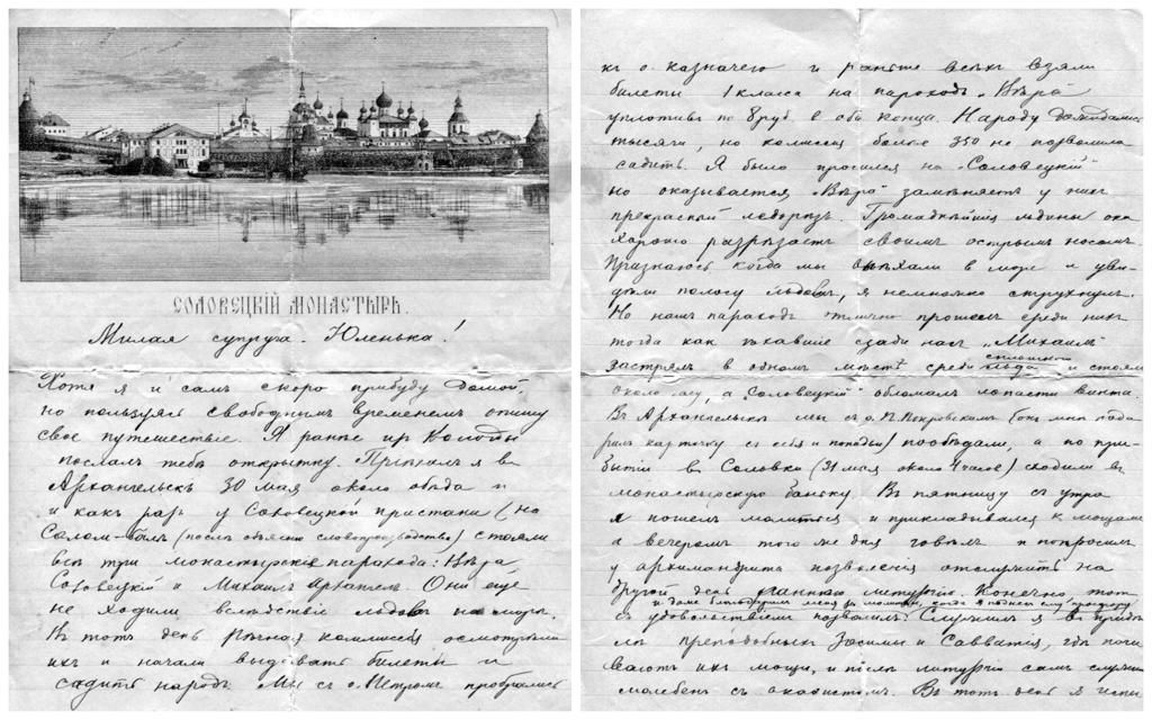 СОЛОВЕЦКІЙ МОНАСТЫРЬ.
Милая супруга. Юленька!
Хотя я и самъ скоро прибуду домой,
но пользуясь свободнымъ временемъ опишу
свое путешествіе. Я ранѣе изъ Вологды
послалъ тебѣ открытку. Пріѣхалъ я въ
Архангельскъ 30 мая около обѣда и
и какъ разъ у Соловецкой пристани (на
Солом-балѣ (послѣ объясню словопроизводство) стояли
всѣ три монастырскіе парохода: Вѣра,
Соловецкій и Михаилъ Архангелъ. Они еще
не ходили вслѣдствіе льдовъ на морѣ.
Въ тотъ день рѣчная коммиссія осмотрѣла
ихъ и начали выдавать билеты и
садить народъ. Мы съ о. Петромъ пробрались
къ о. казначею и раньше всѣхъ взяли
билеты 1 класса на пароходъ „Вѣра"
уплотивъ по 8 руб. въ оба конца. Народу дожидалось
тысячи, но комиссія болѣе 350 не позволила
садить. Я было просился на „Соловецкій"
но оказывается „Вѣра" замѣняетъ у нихъ
прекрасный ледорѣзъ. Громаднѣйшія льдины она
хорошо разрѣзаетъ своимъ острымъ носомъ.
Признаюсь когда мы выѣхали въ море и уви-
дѣли полосу льдовъ, я немножко струхнулъ.
Но нашъ пароходъ отлично прошелъ среди нихъ
тогда какъ ѣхавшіе сзади насъ „Михаилъ"
застрялъ въ одномъ мѣстѣ среди сплошного льда и стоялъ
около часу, а „Соловецкій" обломалъ лопасти винта.
Въ Архангельскѣ мы съ о. П. Покровскимъ (онъ мнѣ пода-
рилъ карточку съ себя и попадьи) пообѣдали, а по при-
бытіи въ Соловки (31 мая около 4 часов) сходили въ
монастырскую баньку. Въ пятницу съ утра
я пошелъ молиться и прикладывался къ мощамъ
а вечеромъ того же дня говѣлъ и попросилъ
у архимандрита позволенія отслужить на
другой день раннюю литургію. Конечно тотъ
съ удовольствіемъ позволилъ:
Служилъ я въ придѣ-
лѣ преподобныхъ Зосимы и Савватія, гдѣ почи-
ваютъ ихъ мощи, и послѣ литургіи самъ служилъ
молебенъ съ акафистомъ. Въ тотъ день я